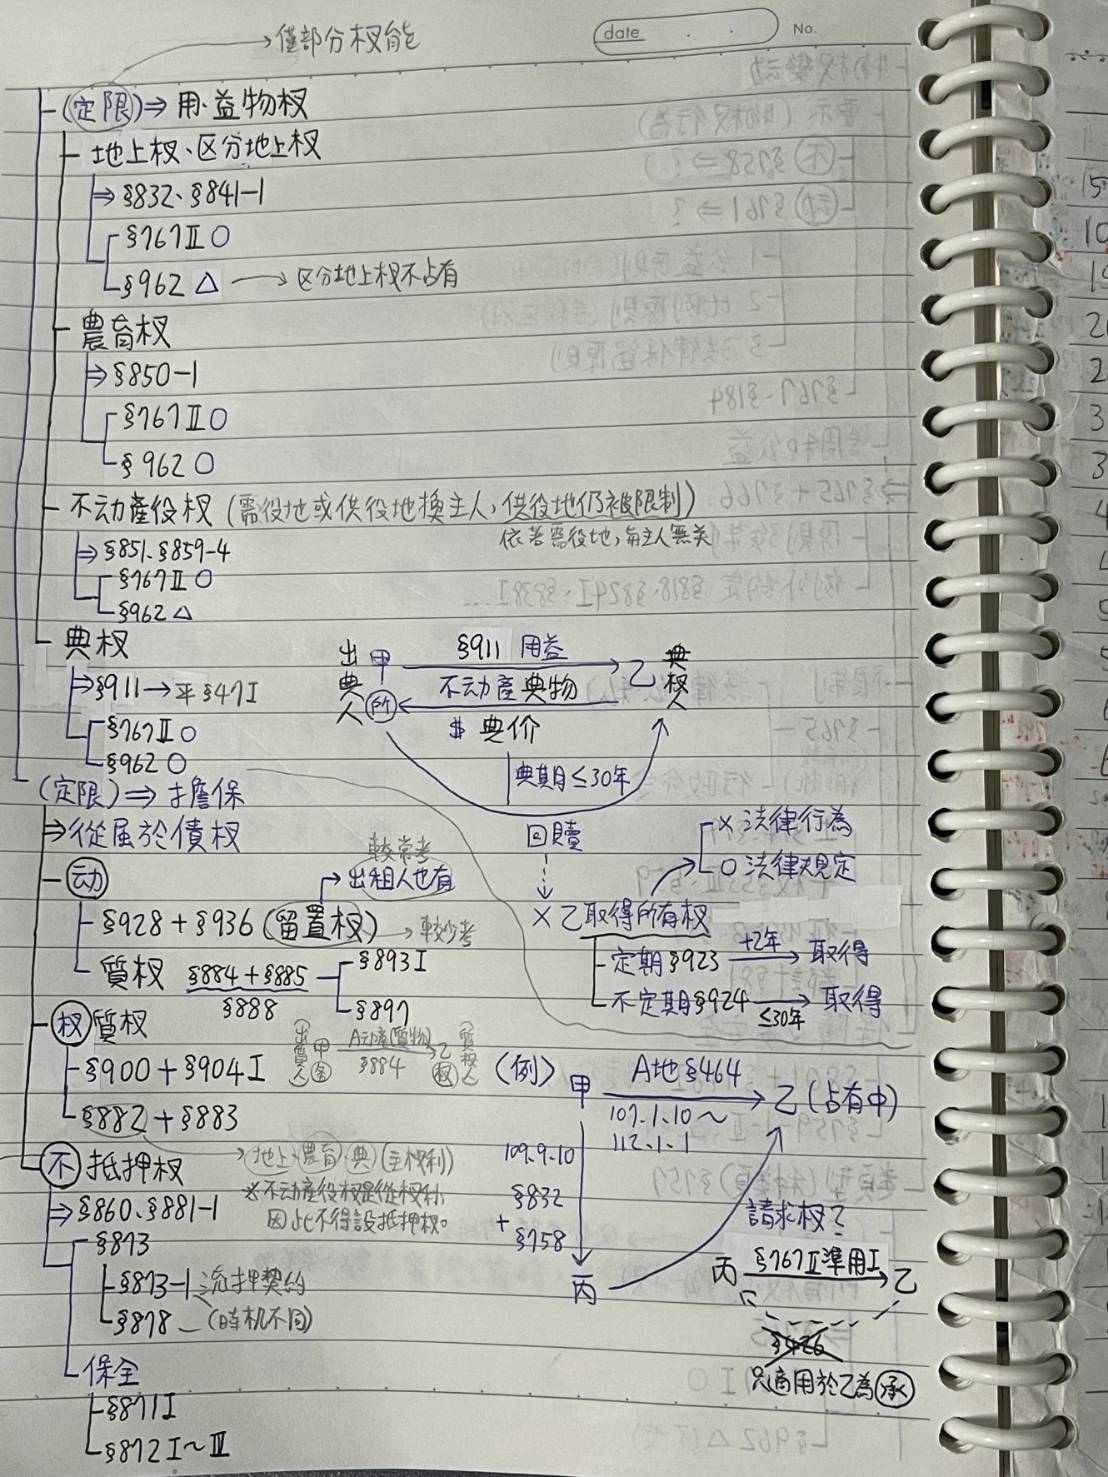 僅部分权能
date
No.
(定限)⇒用.益物权
地上权、区分地上权
⇒§832、§841-1
§767Ⅱ○
§962△→区分地上权不占有
農育权
⇒§850-1
§767Ⅱ○
§962○
不动產役权(需役地或供役地換主人,供役地仍被限制)
依著需役地,与主人無关
⇒§851、§859-4
§767Ⅱ○
§962△
典权
⇒§911→平§47Ⅰ
§767Ⅱ○
§962○
出典人
甲
所
§911 用益
不动產典物
$ 典价
乙
典权人
典期≤30年
回贖
×乙取得所有权
×法律行為
○法律規定
定期§923 +2年→取得
不定期§924 ≤30年→取得
(定限)⇒擔保
⇒從属於債权
动
較常考
出租人也有
§928+§936(留置权)→較少考
質权 §884+§885
§888
§893Ⅰ
§897
权質权
§900+§904Ⅰ
§882+§883
出質人
甲
A动產(質物)
§884
乙
权
質权人
地上、農育、典(主权利)
※不动產役权是從权利
因此不得設抵押权。
不抵押权
⇒§860、§881-1
§873
§873-1流押契約
§878(時机不同)
保全
§871Ⅰ
§872Ⅰ~Ⅲ
(例)甲
A地§464
107.1.10~
112.1.1
乙(占有中)
109.9.10
§832
+
§758
丙
請求权?
丙 §767Ⅱ準用Ⅰ→乙
§426
只適用於乙為承